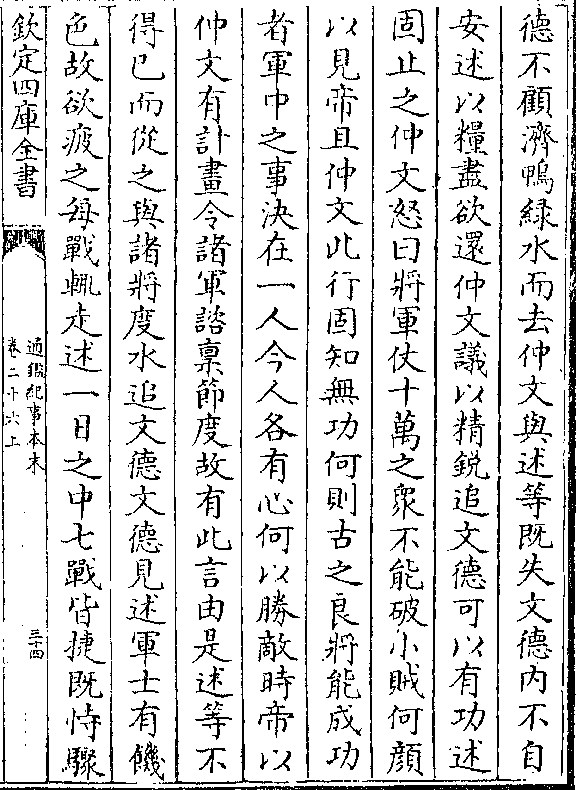 德不顧濟鴨緑水而去仲文與述等既失文德内不自
安述以糧盡欲還仲文議以精鋭追文德可以有功述
固止之仲文怒曰將軍仗十萬之衆不能破小賊何顔
以見帝且仲文此行固知無功何則古之良將能成功
者軍中之事決在一人今人各有心何以勝敵時帝以
仲文有計畫令諸軍諮稟節度故有此言由是述等不
得已而從之與諸將度水追文德文德見述軍士有饑
色故欲疲之每戰輒走述一日之中七戰皆捷既恃驟
欽定四庫全書
通鑑紀事本末
卷二十六上
三十四